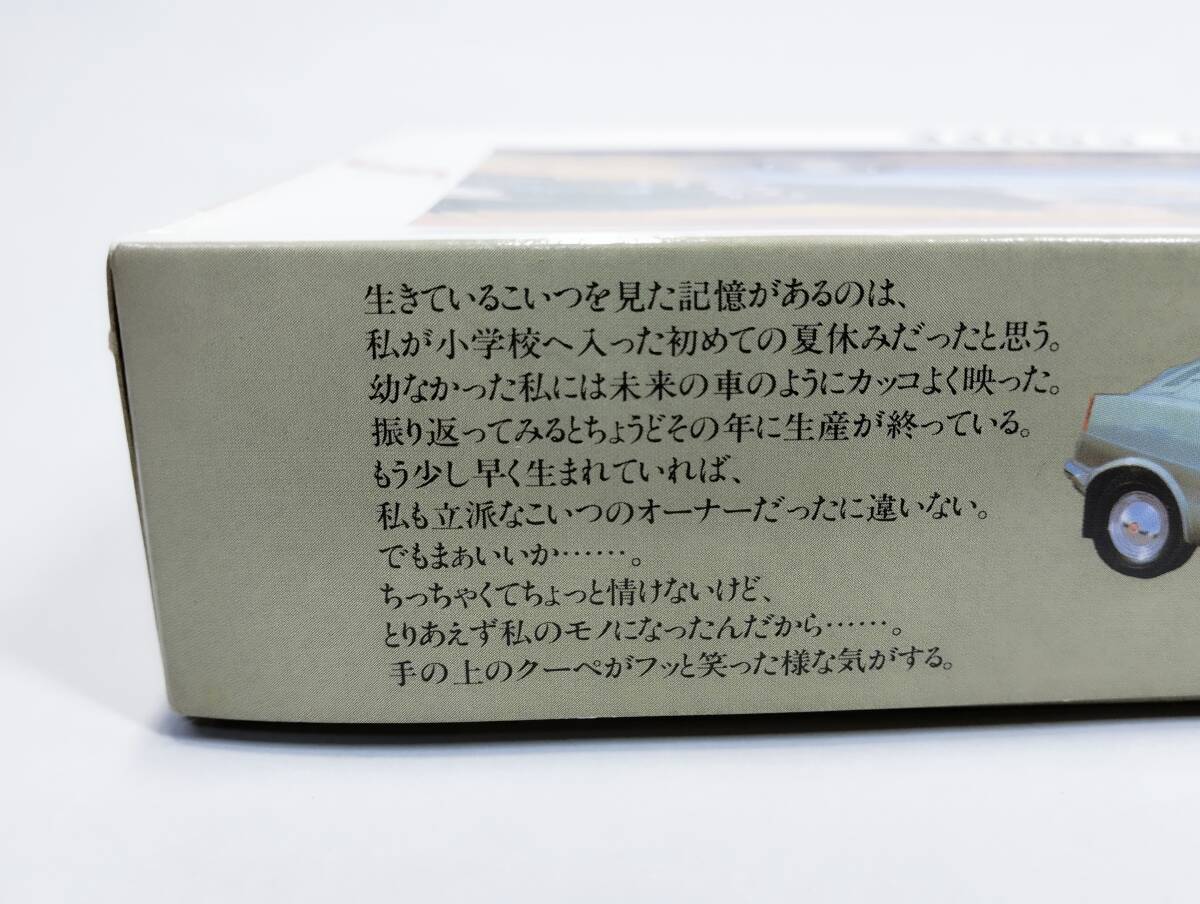 生きているこいつを見た記憶があるのは、
私が小学校へ入った初めての夏休みだったと思う。
幼なかった私には未来の車のようにカッコよく映った。
振り返ってみるとちょうどその年に生産が終っている。
もう少し早く生まれていれば、
私も立派なこいつのオーナーだったに違いない。
でもまぁいいか……。
ちっちゃくてちょっと情けないけど、
とりあえず私のモノになったんだから……。
手の上のクーペがフッと笑った様な気がする。